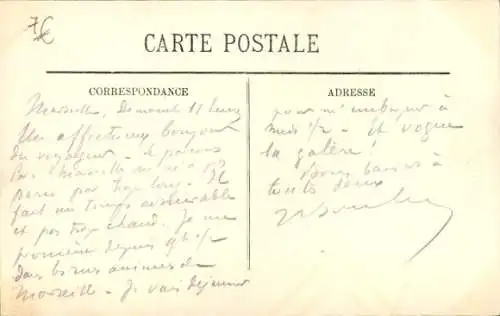 7€
CARTE POSTALE
CORRESPONDANCE
Marseille, Dimanche 11 heures
Un affectueux bonjour
du voyageur - Le parcours
Paris Marseille ne m'a pas
paru par trop long. Il
fait un temps admirable
et pas trop chaud. Je me
promène depuis 9h 1/2
dans les rues animées de
Marseille - Je vais déjeuner
ADRESSE
pour m'embarquer à
midi 1/2 - Et vogue
la galère!
Bons baisers à
toutes deux